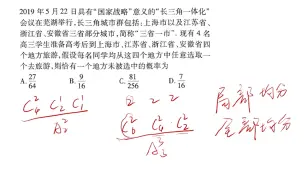 2019 年 5 月 22 日具有“国家战略”意义的“长三角一体化”
会议在芜湖举行,长三角城市群包括:上海市以及江苏省、
浙江省、安徽省三省部分城市,简称“三省一市”. 现有 4 名
高三学生准备高考后到上海市、江苏省、浙江省、安徽省四
个地方旅游,假设每名同学均从这四个地方中任意选取一
个去旅游,则恰有一个地方未被选中的概率为
A. 27/64 B. 9/16 C. 81/256 D. 7/16
C₄² C₂¹ C₁¹ / A₂² 2 2 2 局部均分
C₆² C₄² C₂² / A₃³ 全部均分